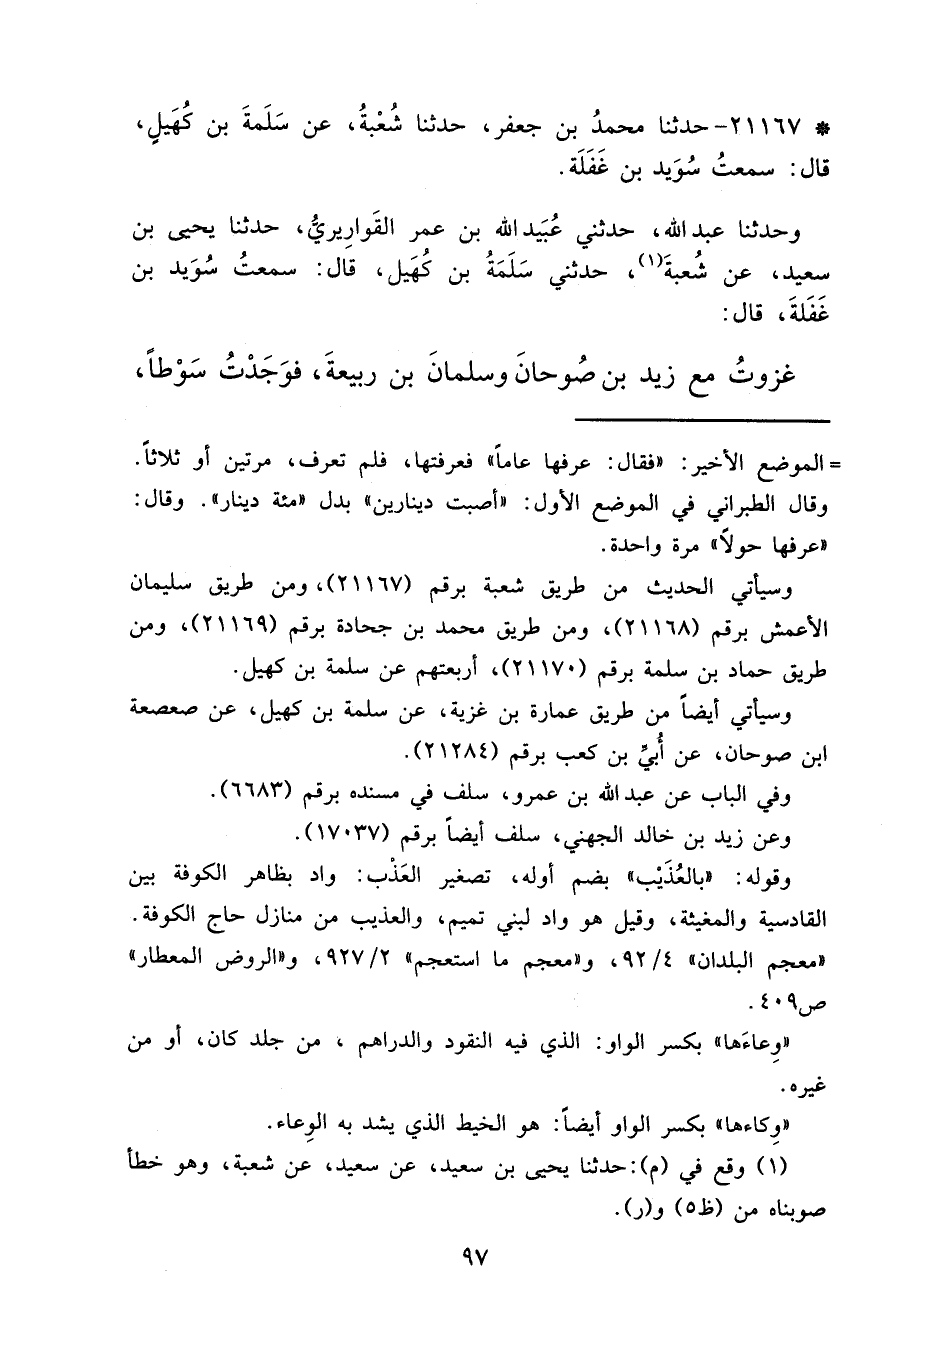 * ٢١١٦٧- حدثنا محمدُ بن جعفر، حدثنا شُعْبةُ، عن سَلَمةَ بن كُهَيلٍ،
قال: سمعتُ سُوَيد بن غَفَلَة.
وحدثنا عبد الله، حدثني عُبَيد الله بن عمر القَواريريُّ، حدثنا يحيى بن
سعيد، عن شُعبةَ(١)، حدثني سَلَمَةُ بن كُهَيل، قال: سمعتُ سُوَيد بن
غَفَلةَ، قال:
غزوتُ مع زيد بن صُوحانَ وسلمانَ بن ربيعةَ، فوَجَدْتُ سَوْطاً،
= الموضع الأخير: «فقال: عرفها عاماً» فعرفتها، فلم تعرف، مرتين أو ثلاثاً.
وقال الطبراني في الموضع الأول: «أصبت دينارين» بدل «مئة دينار». وقال:
«عرفها حولاً» مرة واحدة.
وسيأتي الحديث من طريق شعبة برقم (٢١١٦٧)، ومن طريق سليمان
الأعمش برقم (٢١١٦٨)، ومن طريق محمد بن جحادة برقم (٢١١٦٩)، ومن
طريق حماد بن سلمة برقم (٢١١٧٠)، أربعتهم عن سلمة بن كهيل.
وسيأتي أيضاً من طريق عمارة بن غزية، عن سلمة بن كهيل، عن صعصعة
ابن صوحان، عن أُبيِّ بن كعب برقم (٢١٢٨٤).
وفي الباب عن عبد الله بن عمرو، سلف في مسنده برقم (٦٦٨٣).
وعن زيد بن خالد الجهني، سلف أيضاً برقم (١٧٠٣٧).
وقوله: «بالعُذَيْب» بضم أوله، تصغير العَذْب: واد بظاهر الكوفة بين
القادسية والمغيثة، وقيل هو واد لبني تميم، والعذيب من منازل حاج الكوفة.
«معجم البلدان» ٩٢/٤، و«معجم ما استعجم» ٩٢٧/٢، و«الروض المعطار»
ص٤٠٩.
«وِعاءَها» بكسر الواو: الذي فيه النقود والدراهم ، من جلد كان، أو من
غيره.
«وِكاءها» بكسر الواو أيضاً: هو الخيط الذي يشد به الوِعاء.
(١) وقع في (م): حدثنا يحيى بن سعيد، عن سعيد، عن شعبة، وهو خطأ
صوبناه من (ظ٥) و(ر).
٩٧